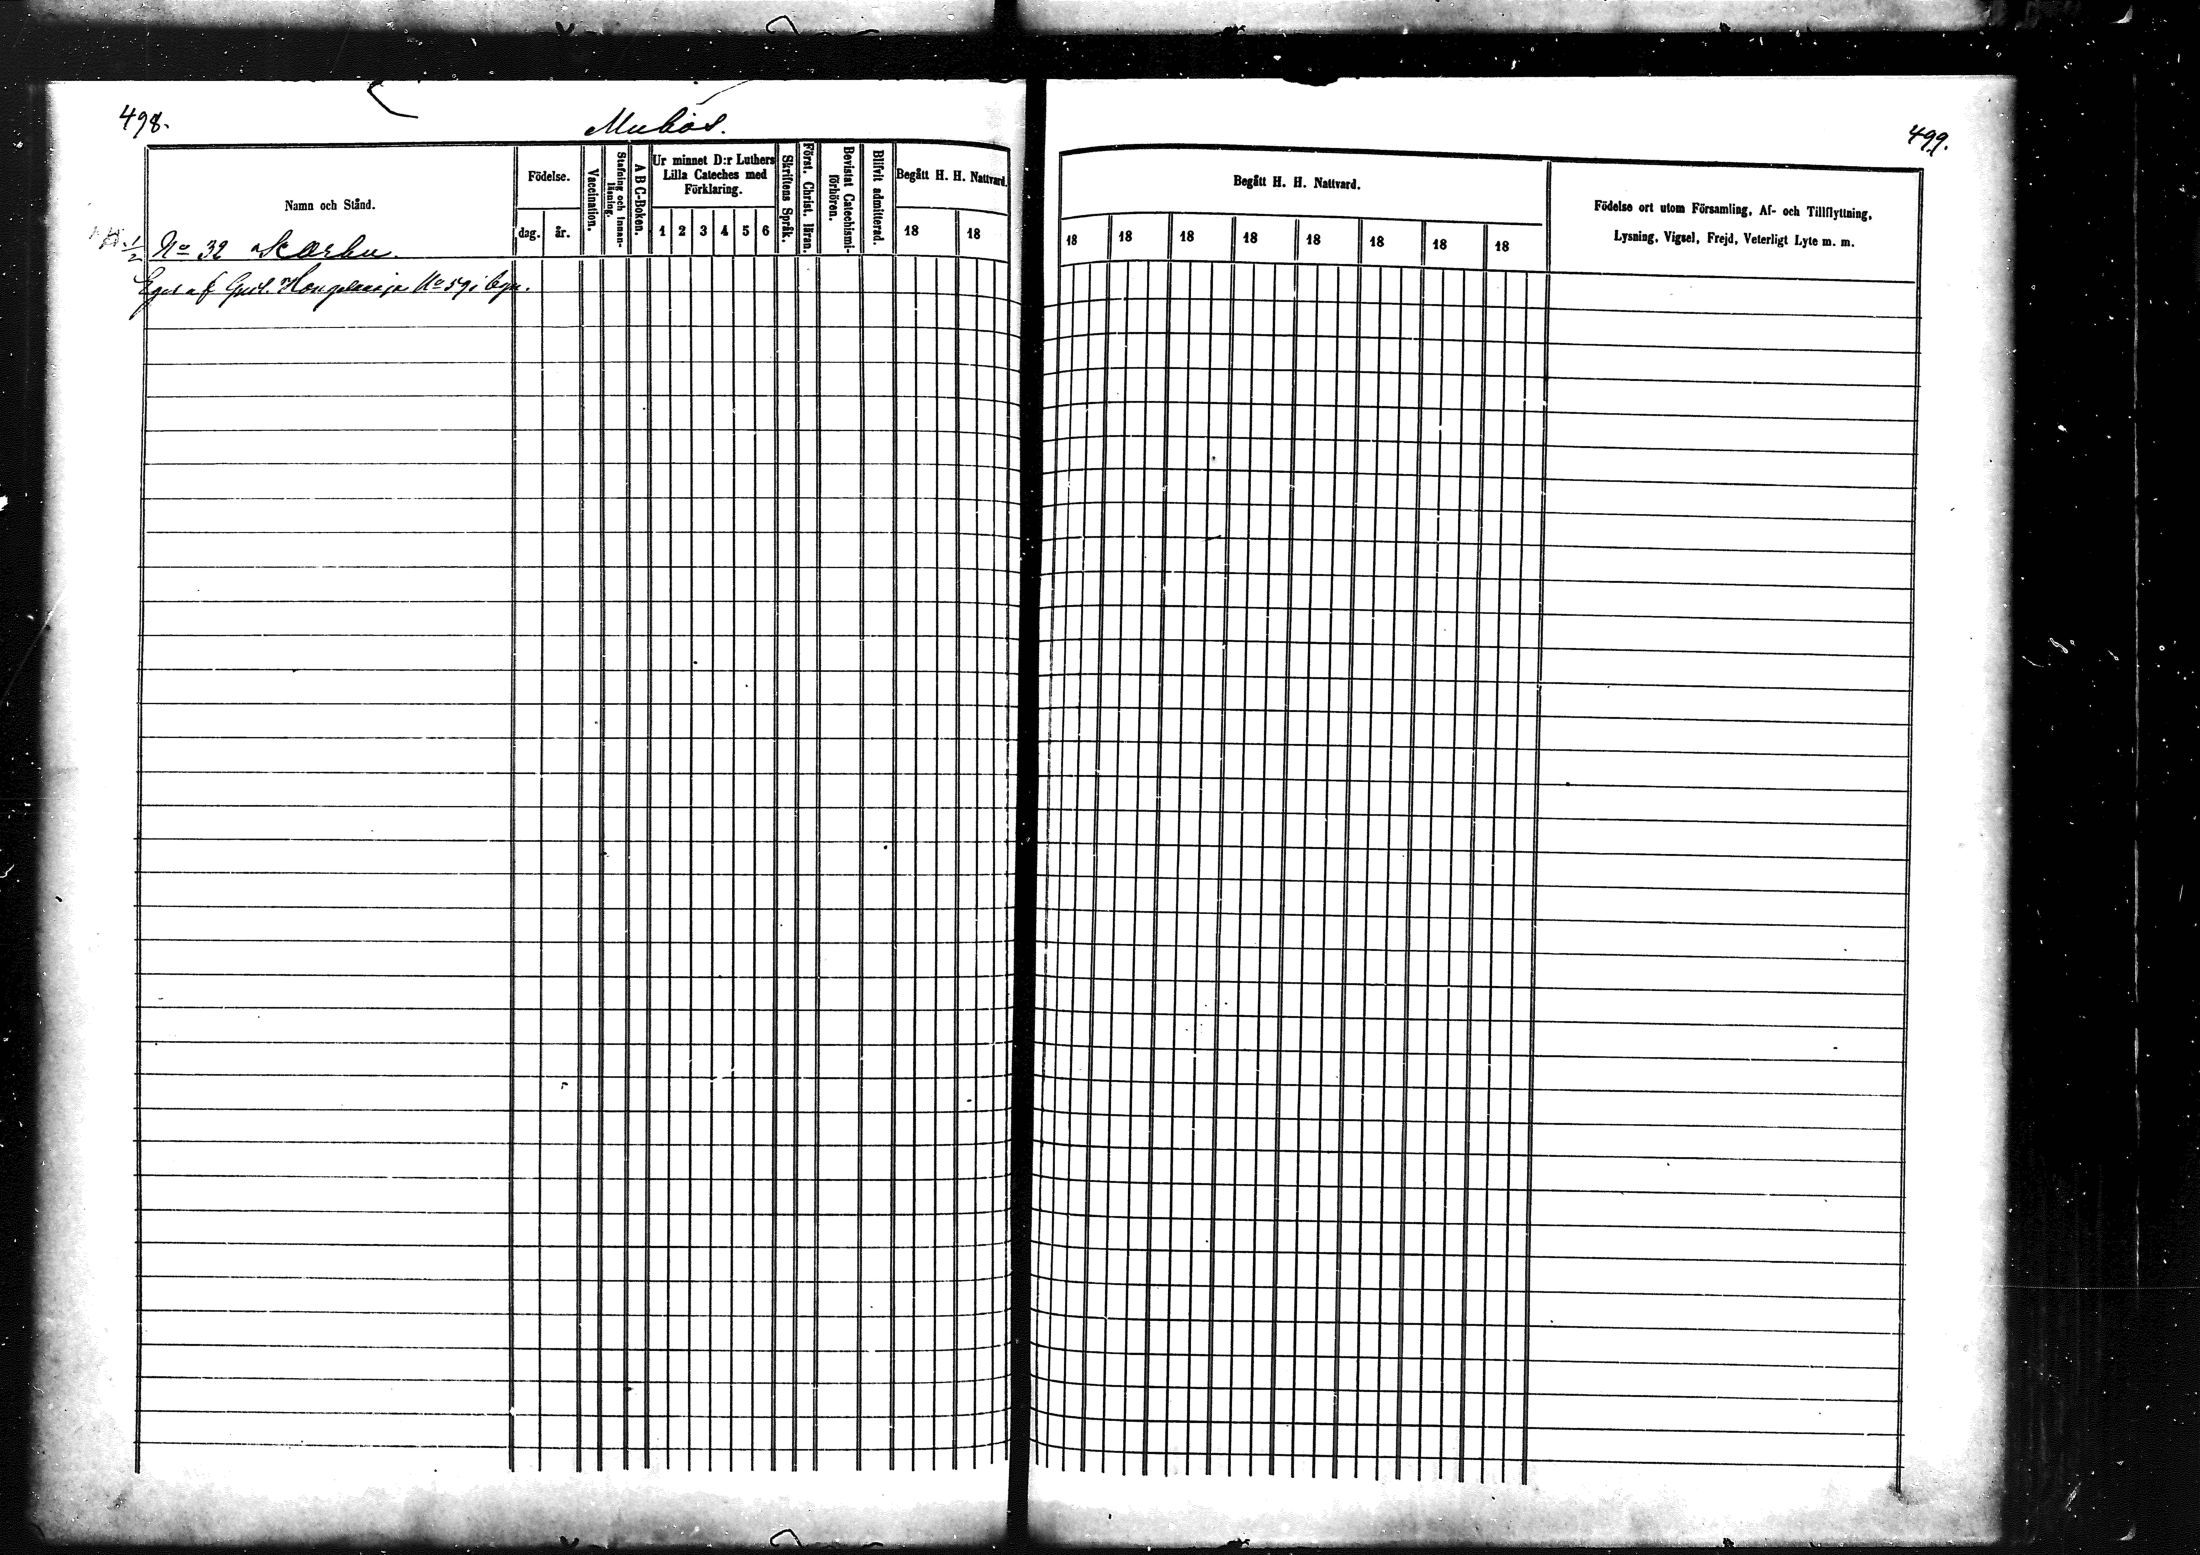 498.
Muhos.
Namn och Stånd.
Födelse.
dag.
år.
Vaccination.
Stafning och innan-
läsning.
A B C-Boken.
Ur minnet D:r Luthers
Lilla Cateches med
Förklaring.
1 2 3 4 5 6
Skriftens Språk.
Först. Christ. läran.
Bevistat Catechismi-
förhören.
Blifvit admitterad.
Begått H. H. Nattvard.
18 18
1/2 No 32 Karhu.
Eges af Gust. No 59 i byn.
499.
Begått H. H. Nattvard.
18 18 18 18 18 18 18 18
Födelse ort utom Församling, Af- och Tillflyttning,
Lysning, Vigsel, Frejd, Veterligt Lyte m. m.